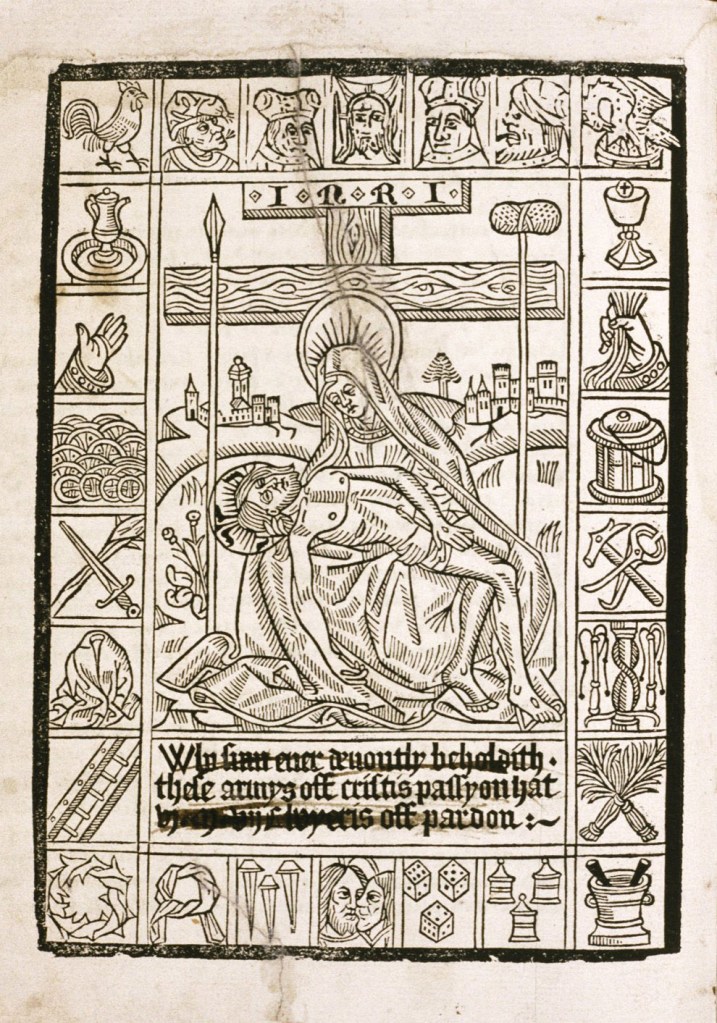 I·N·R·I
Who sum euer deuoutly beholdith·
these armys off cristis passyon hat
yeris off pardon :~